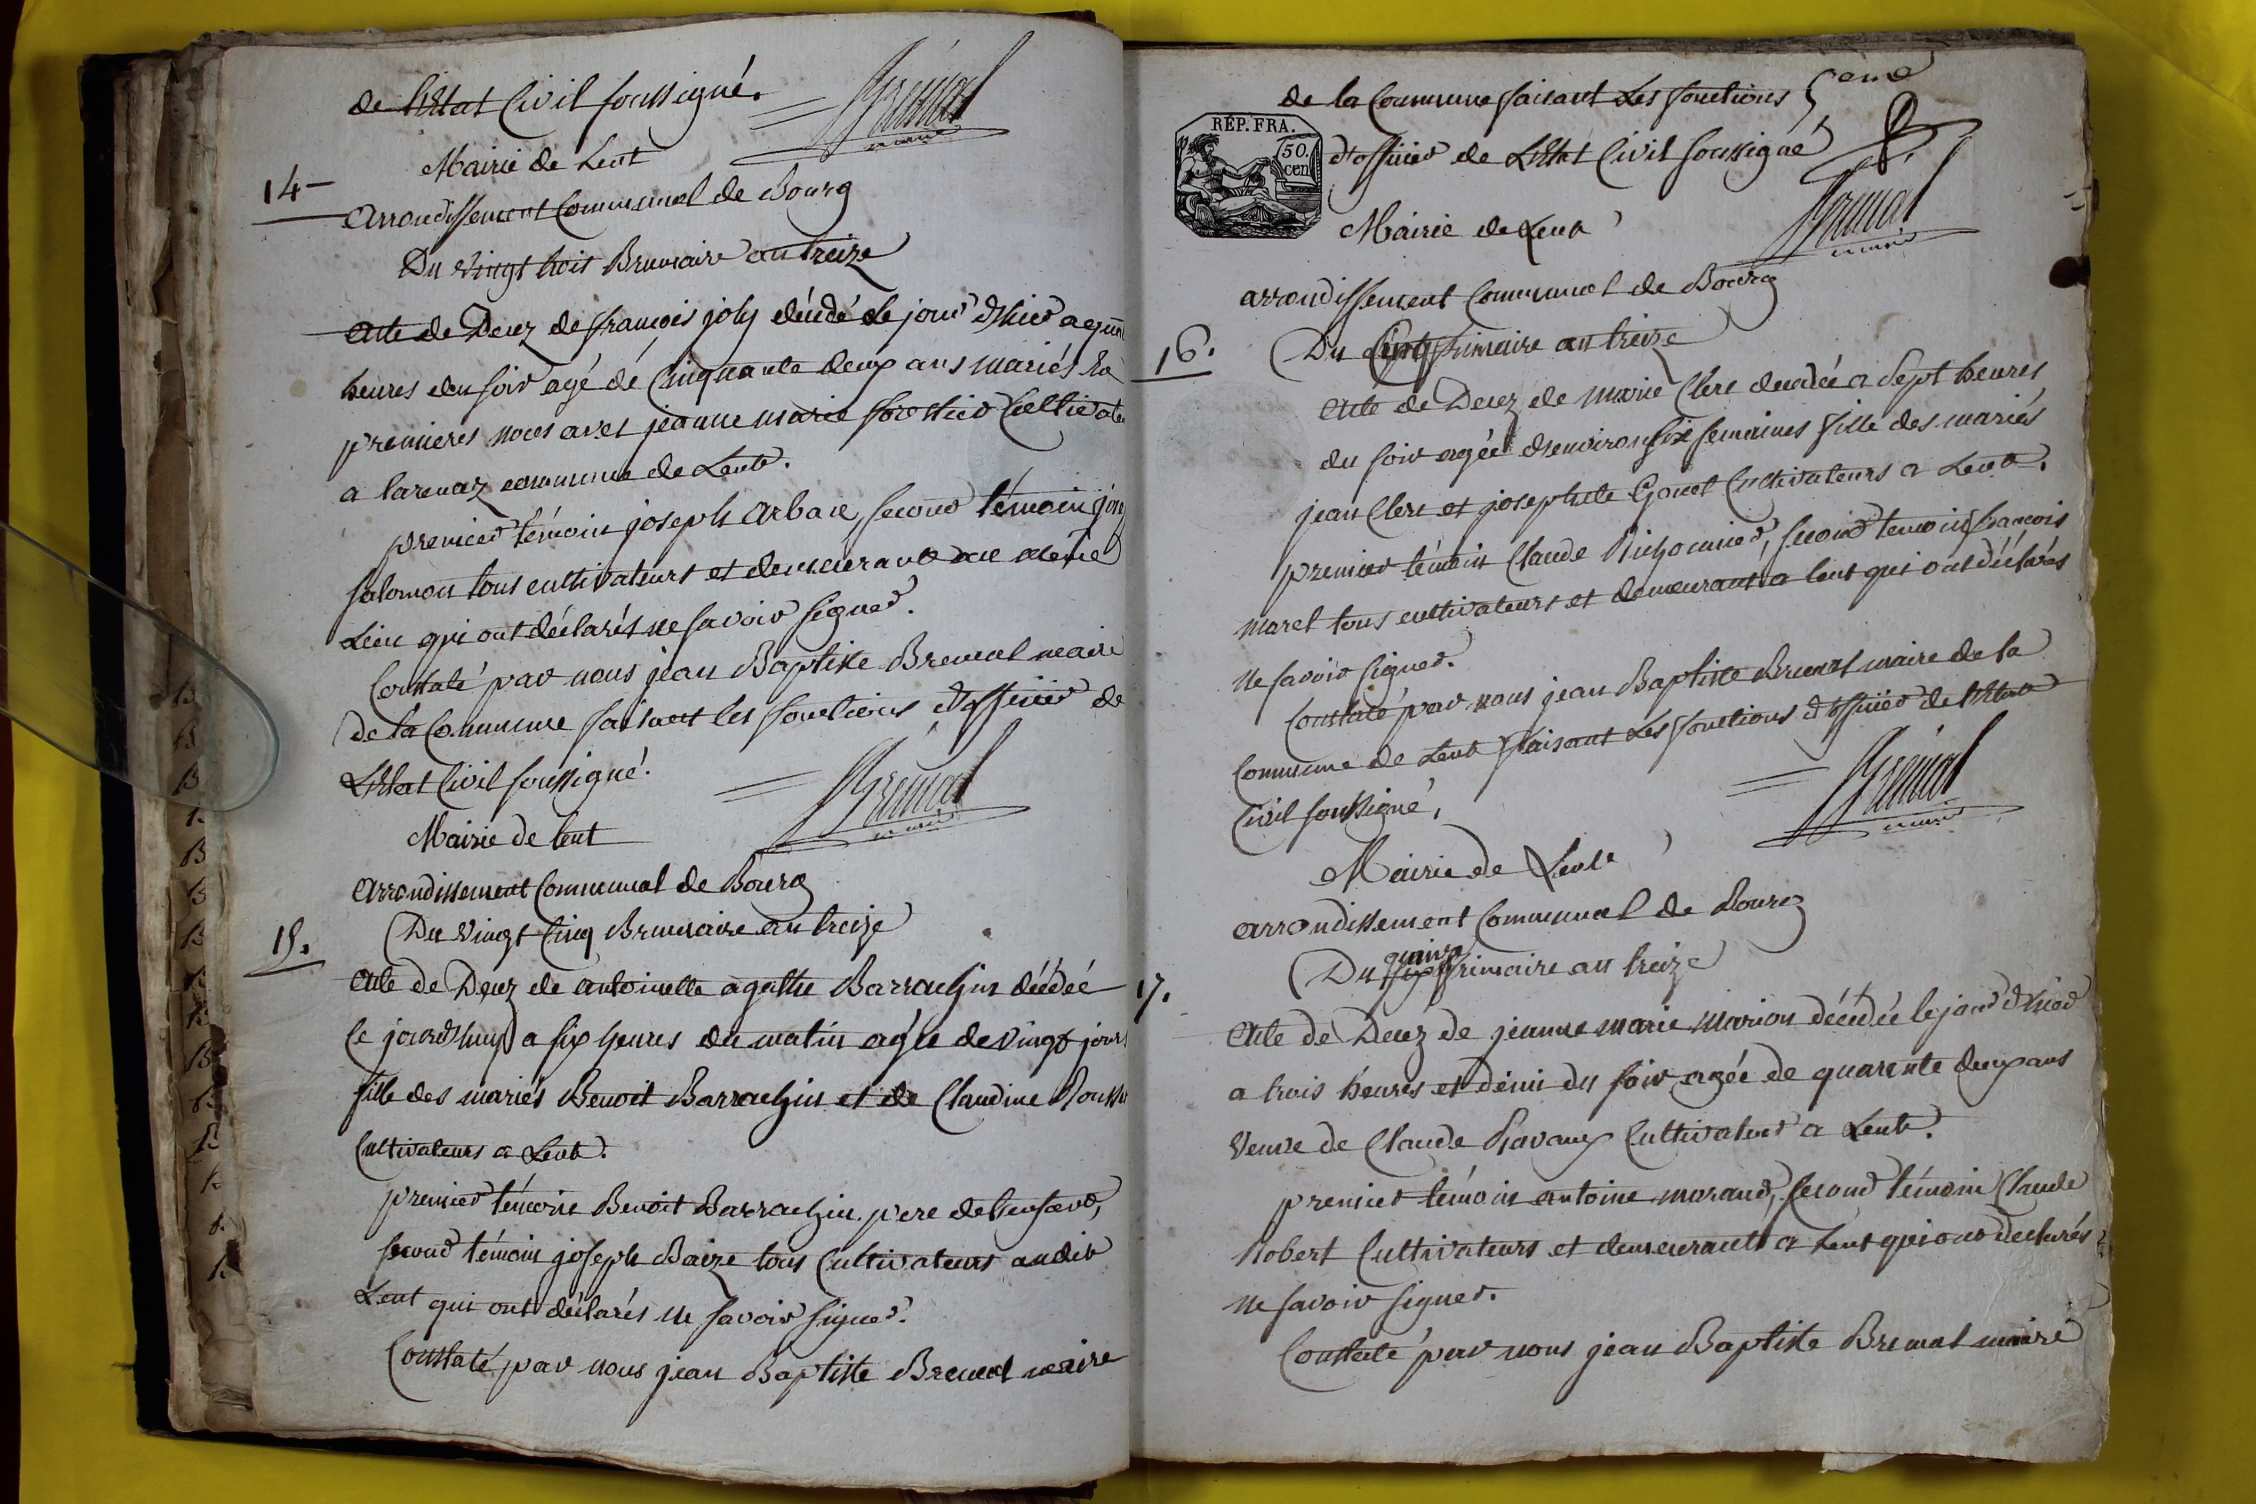 de L'Etat Civil soussigné.
Bremal
maire
Mairie de Lent
14
arrondissement Communal de Bourg
Du vingt trois Brumaire an treize
Acte de Decez de françois joly décédé le jour d'hier a
heures du soir agé de Cinquante deux ans mariés En
premieres noces avec jeanne marie
a larenaz commune de Lent.
premier témoin joseph arbare, second témoin
salomon tous cultivateurs et demeurant au meme
Lieu qui ont déclarés ne savoir signer.
Constaté par nous jean Baptiste Bremal maire
de la Commune faisant les fonctions d'officier de
L'Etat Civil soussigné.
Bremal
maire
Mairie de lent
arrondissement Communal de Bourg
15.
Du vingt Cinq Brumaire an treize
Acte de Decez de antoinette agathe Barrachin décédée
le jourd'huy a six heures du matin agée de vingt jours
fille des mariés Benoit Barrachin et de Claudine
Cultivateurs a Lent.
premier témoin Benoit Barrachin pere de l'enfant,
second témoin joseph Baize tous Cultivateurs audit
Lent qui ont déclarés ne savoir signer.
Constaté par nous jean Baptiste Bremal maire
5eme
de la Commune faisant Les fonctions
REP. FRA.
50.
cen
d'officier de L'Etat Civil soussigné
Bremal
maire
Mairie de Lent
arrondissement Communal de Bourg
16.
Du frimaire an treize
Acte de Decez de marie Clerc decedée a Sept heures
du soir agée d'environ six semaines fille des mariés
jean Clerc et josephete Gonet Cultivateurs a Lent.
premier témoin Claude, second temoin françois
maret tous cultivateurs et demeurant a lent qui ont déclarés
ne savoir signer.
Constaté par nous jean Baptiste Bremal maire de la
Commune de Lent faisant Les fonctions d'officier de l'Etat
Civil soussigné,
Bremal
maire
Mairie de Lent
arrondissement Communal de Bourg
quinze
Du frimaire an treize
17.
Acte de Decez de jeanne marie marion décédée le jour d'hier
a trois heures et demi du soir agée de quarante deux ans
veuve de Claude Ravaux Cultivateur a Lent.
premier témoin antoine morand, second témoin Claude
Robert Cultivateurs et demeurant a Lent qui ont declarés
ne savoir signer.
Constaté par nous jean Baptiste Bremal maire